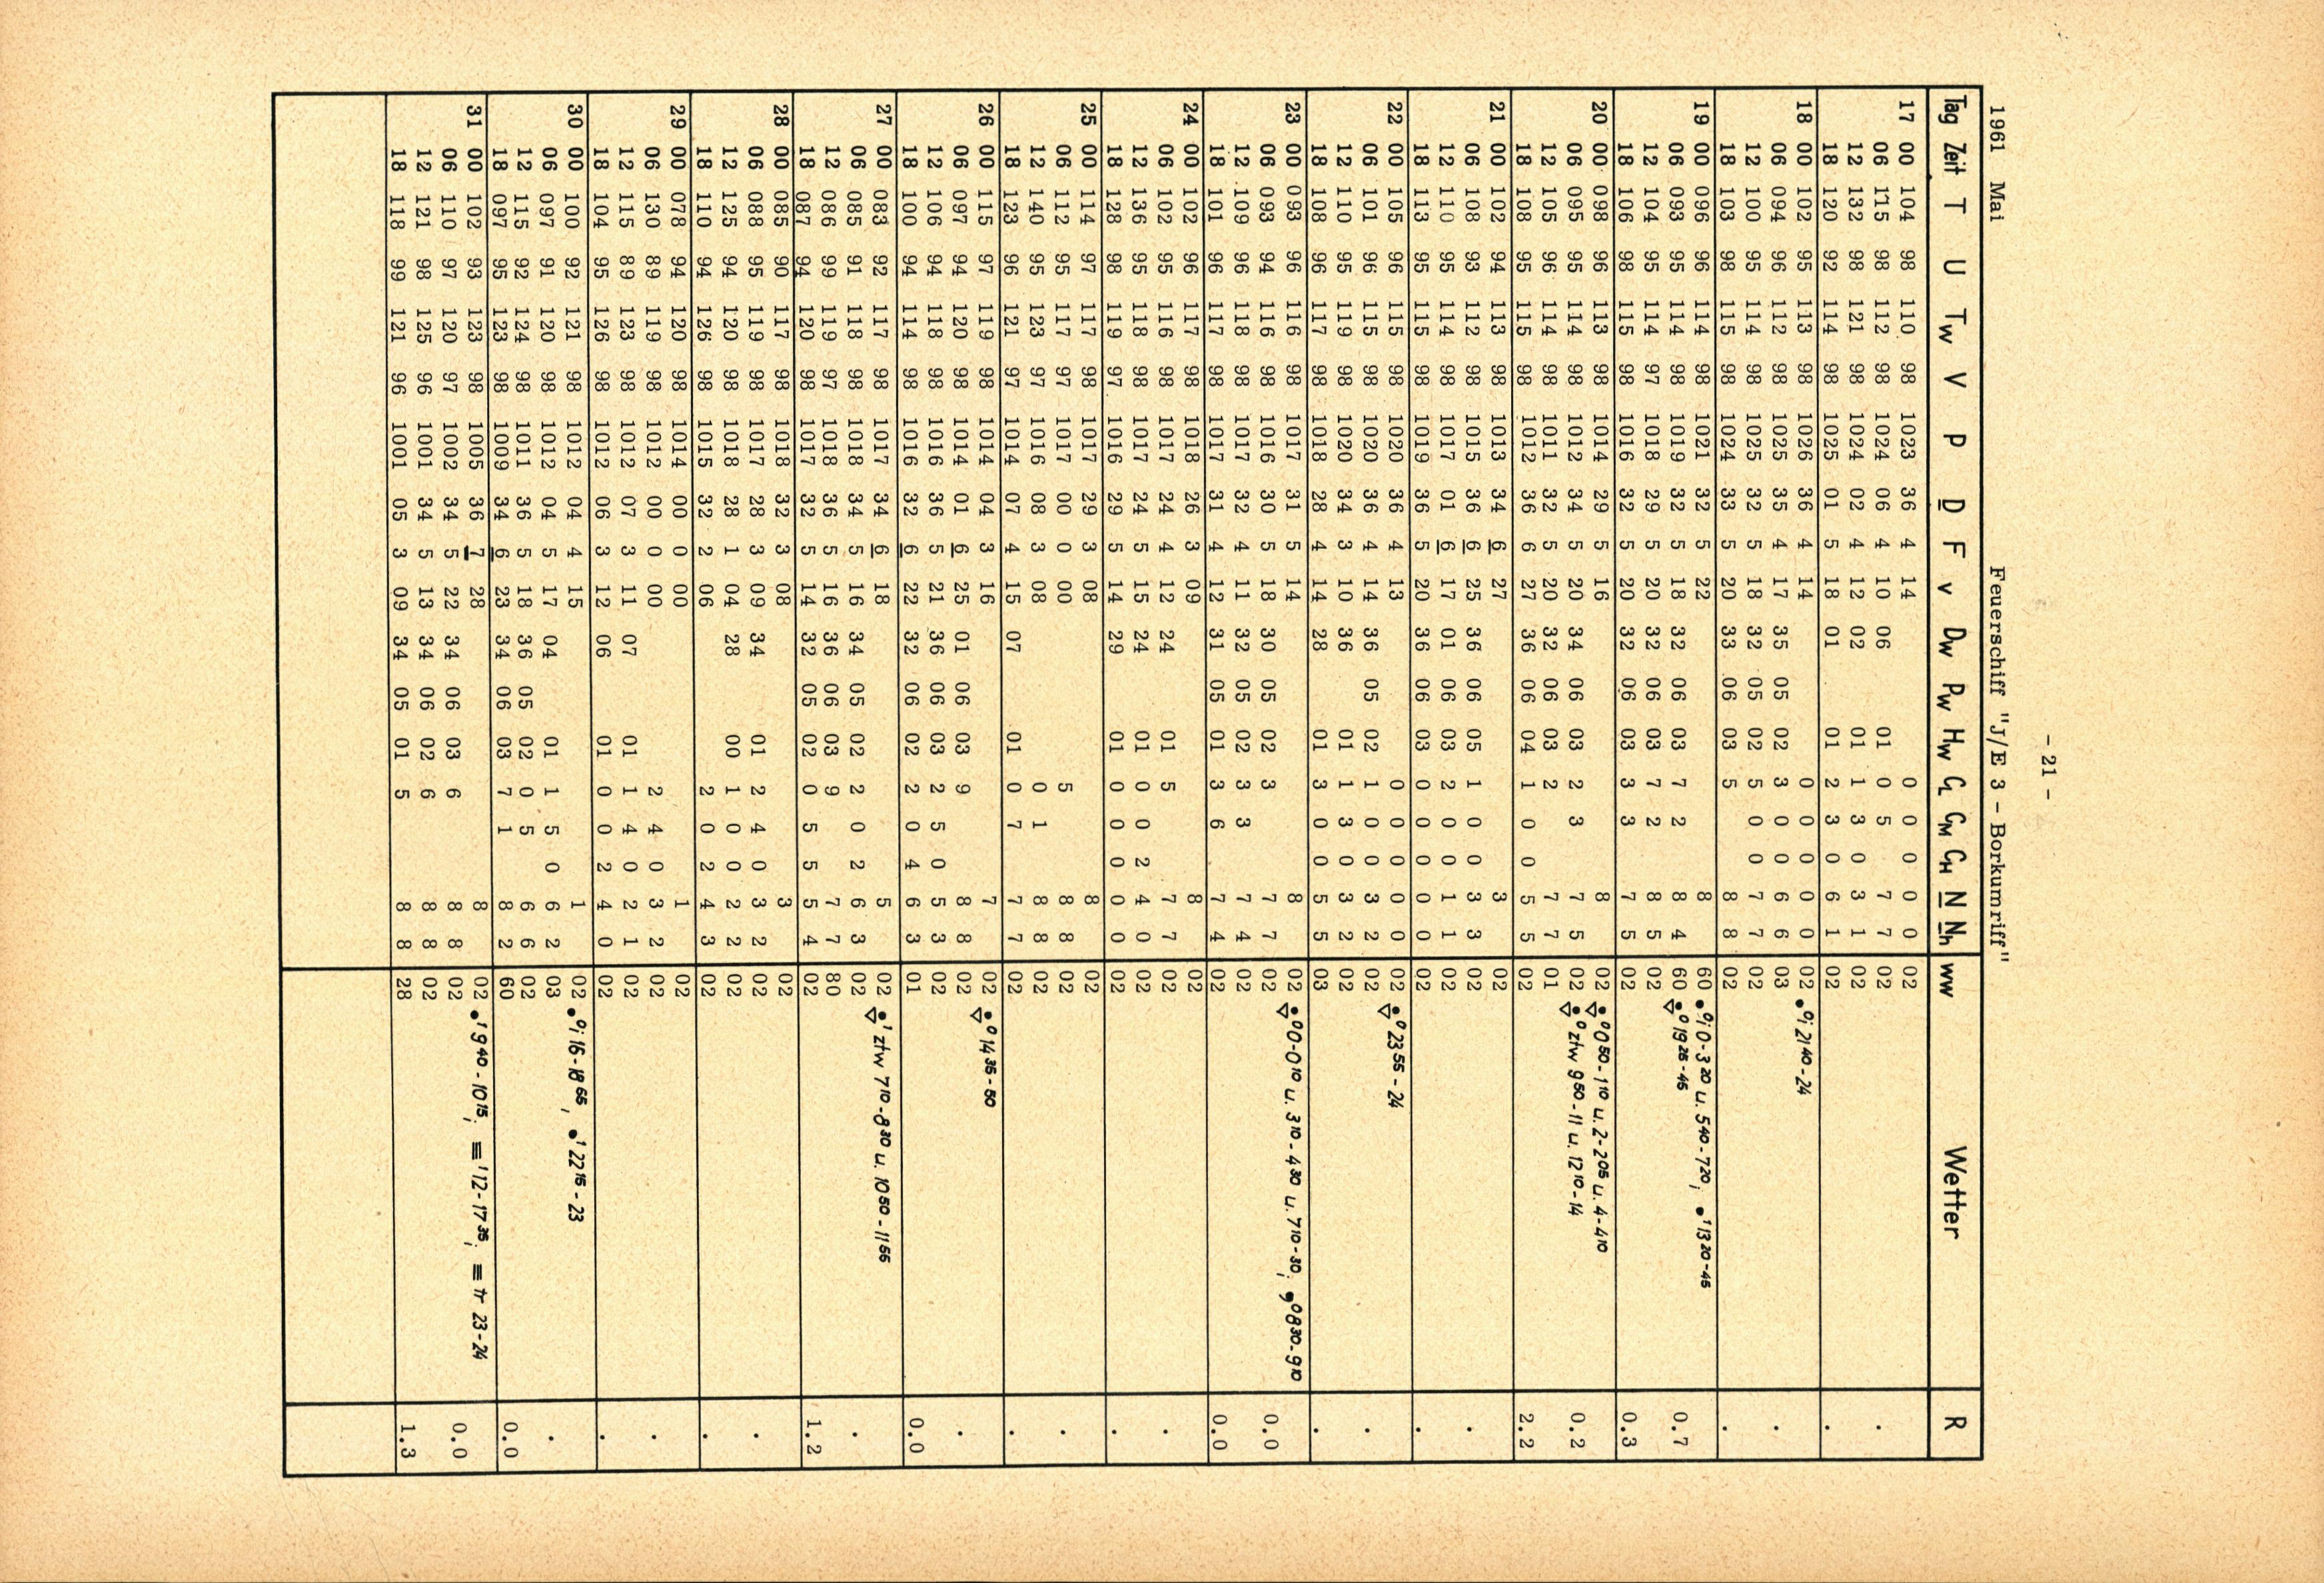 - 21 -
1961 Mai Feuerschiff "J/E 3 - Borkumriff"
Tag Zeit T U Tw V P D F v Dw Pw Hw CL CM CH N Nh ww Wetter R
17 00 104 98 110 98 1023 36 4 14 0 0 0 0 0 02
06 115 98 112 98 1024 06 4 10 06 01 0 5 7 7 02 .
12 132 98 121 98 1024 02 4 12 02 01 1 3 0 3 1 02
18 120 92 114 98 1025 01 5 18 01 01 2 3 0 6 1 02 .
18 00 102 95 113 98 1026 36 4 14 0 0 0 0 0 02 •⁰i 21⁴⁰-24
06 094 96 112 98 1025 35 4 17 35 05 02 3 0 0 6 6 03 .
12 100 95 114 98 1025 32 5 18 32 05 02 5 0 0 7 7 02
18 103 98 115 98 1024 33 5 20 33 06 03 5 8 8 02 .
19 00 096 96 114 98 1021 32 5 22 8 60 •⁰i 0-3²⁰ u. 5⁴⁰-7²⁰; •¹ 13²⁰-⁴⁵
06 093 95 114 98 1019 32 5 18 32 06 03 7 2 8 4 60 ⁰ 19²⁵-⁴⁵ 0.7
12 104 95 114 97 1018 29 5 20 32 06 03 7 2 8 5 02
18 106 98 115 98 1016 32 5 20 32 06 03 3 3 7 5 02 0.3
20 00 098 96 113 98 1014 29 5 16 8 02 ⁰ 0⁵⁰-1¹⁰ u. 2-2⁰⁵ u. 4-4¹⁰
06 095 95 114 98 1012 34 5 20 34 06 03 2 3 7 5 02 ⁰ ztw 9⁵⁰-11 u. 12¹⁰-14 0.2
12 105 96 114 98 1011 32 5 20 32 06 03 2 7 7 01
18 108 95 115 98 1012 36 6 27 36 06 04 1 0 0 5 5 02 2.2
21 00 102 94 113 98 1013 34 6 27 3 02
06 108 93 112 98 1015 36 6 25 36 06 05 1 0 0 3 3 02 .
12 110 95 114 98 1017 01 6 17 01 06 03 2 0 0 1 1 02
18 113 95 115 98 1019 36 5 20 36 06 03 0 0 0 0 0 02 .
22 00 105 96 115 98 1020 36 4 13 0 0 0 0 0 02 ⁰ 23⁵⁵-24
06 101 96 115 98 1020 36 4 14 36 05 02 1 0 0 3 2 02 .
12 110 95 119 98 1020 34 3 10 36 01 1 3 0 3 2 02
18 108 96 117 98 1018 28 4 14 28 01 3 0 0 5 5 03 .
23 00 093 96 116 98 1017 31 5 14 8 02 ⁰ 0-0¹⁰ u. 3¹⁰-4³⁰ u. 7¹⁰-³⁰; ⁰ 8³⁰-9¹⁰
06 093 94 116 98 1016 30 5 18 30 05 02 3 7 7 02 0.0
12 109 96 118 98 1017 32 4 11 32 05 02 3 3 7 4 02
18 101 96 117 98 1017 31 4 12 31 05 01 3 6 7 4 02 0.0
24 00 102 96 117 98 1018 26 3 09 8 02
06 102 95 116 98 1017 24 4 12 24 01 5 7 7 02 .
12 136 95 118 98 1017 24 5 15 24 01 0 0 2 4 0 02
18 128 98 119 97 1016 29 5 14 29 01 0 0 0 0 0 02 .
25 00 114 97 117 98 1017 29 3 08 8 02
06 112 95 117 97 1017 00 0 00 5 8 8 02 .
12 140 95 123 97 1016 08 3 08 0 1 8 8 02
18 123 96 121 97 1014 07 4 15 07 01 0 7 7 7 02 .
26 00 115 97 119 98 1014 04 3 16 7 02 ⁰ 14³⁵-⁵⁰
06 097 94 120 98 1014 01 6 25 01 06 03 9 8 8 02 .
12 106 94 118 98 1016 36 5 21 36 06 03 2 5 0 5 3 02
18 100 94 114 98 1016 32 6 22 32 06 02 2 0 4 6 3 01 0.0
27 00 083 92 117 98 1017 34 6 18 5 02 ¹ ztw 7¹⁰-8³⁰ u. 10⁵⁰-11⁵⁵
06 085 91 118 98 1018 34 5 16 34 05 02 2 0 2 6 3 02 .
12 086 99 119 97 1018 36 5 16 36 06 03 9 7 7 80
18 087 94 120 98 1017 32 5 14 32 05 02 0 5 5 5 4 02 1.2
28 00 085 90 117 98 1018 32 3 08 3 02
06 088 95 119 98 1017 28 3 09 34 01 2 4 0 3 2 02 .
12 125 94 120 98 1018 28 1 04 28 00 1 0 0 2 2 02
18 110 94 126 98 1015 32 2 06 2 0 2 4 3 02 .
29 00 078 94 120 98 1014 00 0 00 1 02
06 130 89 119 98 1012 00 0 00 2 4 0 3 2 02 .
12 115 89 123 98 1012 07 3 11 07 01 1 4 0 2 1 02
18 104 95 126 98 1012 06 3 12 06 01 0 0 2 4 0 02 .
30 00 100 92 121 98 1012 04 4 15 1 02 •⁰i 16-18⁵⁵, •¹ 22¹⁵-23
06 097 91 120 98 1012 04 5 17 04 01 1 5 0 6 2 03 .
12 115 92 124 98 1011 36 5 18 36 05 02 0 5 6 6 02
18 097 95 123 98 1009 34 6 23 34 06 03 7 1 8 2 60 0.0
31 00 102 93 123 98 1005 36 7 28 8 02 •¹ 9⁴⁰-10¹⁵; ≡¹ 12-17³⁵; ≡ tr 23-24
06 110 97 120 97 1002 34 5 22 34 06 03 6 8 8 02 0.0
12 121 98 125 96 1001 34 5 13 34 06 02 6 8 8 02
18 118 99 121 96 1001 05 3 09 34 05 01 5 8 8 28 1.3